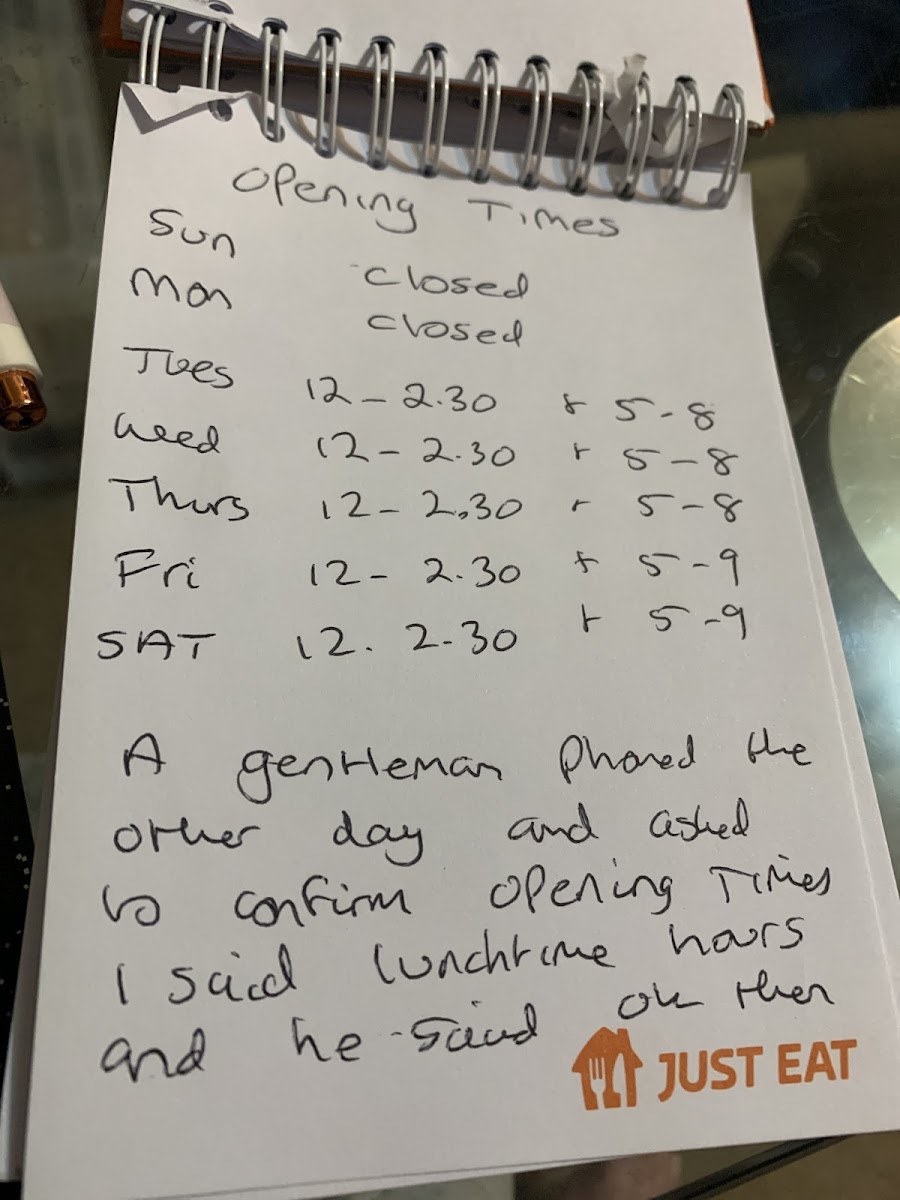 Opening Times
Sun closed
Mon closed
Tues 12 - 2.30 + 5-8
Weed 12 - 2.30 + 5-8
Thurs 12 - 2.30 + 5-8
Fri 12 - 2.30 + 5-9
SAT 12. 2-30 + 5-9
A gentleman phoned the
other day and asked
to confirm opening Times
I said lunchtime hours
and he said ok then
JUST EAT